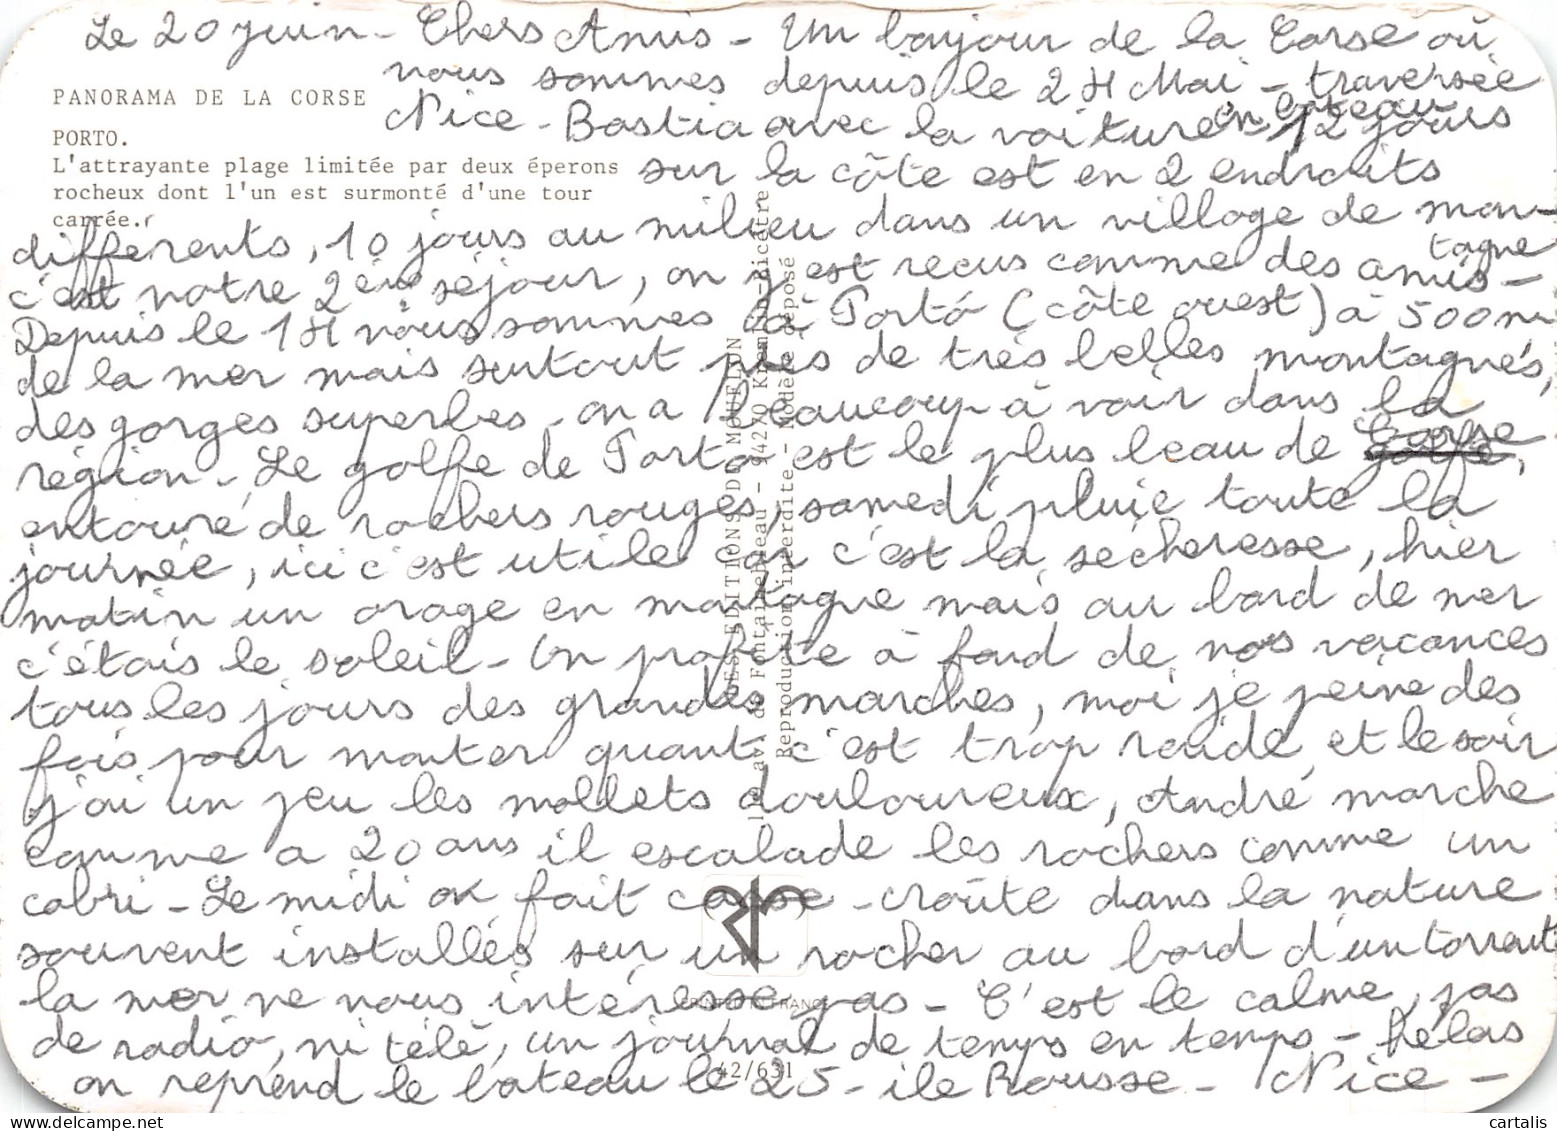 Le 20 juin - Chers Amis - Un bonjour de la Corse où
nous sommes depuis le 24 Mai - traversée
PANORAMA DE LA CORSE
Nice - Bastia avec la voiture en bateau 12 jours
PORTO.
L'attrayante plage limitée par deux éperons
rocheux dont l'un est surmonté d'une tour
carrée.
sur la côte est en 2 endroits
différents, 10 jours au milieu dans un village de mon-
tagne
c'est notre 2ème séjour, on y est recus comme des amis -
Depuis le 14 nous sommes à Porto (côte ouest) à 500 m
de la mer mais surtout près de très belles montagnes,
des gorges superbes - on a beaucoup à voir dans la
région - Le golfe de Porto est le plus beau de Corse
entouré de rochers rouges, samedi pluie toute la
journée, ici c'est utile car c'est la sécheresse, hier
matin un orage en montagne mais au bord de mer
c'étais le soleil - On profite à fond de nos vacances
tous les jours des grandes marches, moi je peine des
fois pour monter quant c'est trop raide et le soir
j'ai un peu les mollets douloureux, André marche
comme a 20 ans il escalade les rochers comme un
cabri - Le midi on fait casse-croûte dans la nature
souvent installés sur un rocher au bord d'un torrent
la mer ne nous intéresse pas - C'est le calme, pas
de radio, ni télé, un journal de temps en temps - hélas
on reprend le bateau le 25 - ile Rousse - Nice -
LES EDITIONS DU MOUFLON
av. de Fontainebleau - 94270 Kremlin-Bicêtre
Reproduction interdite - Modèle déposé
PRINTED IN FRANCE
42/631
cartalis